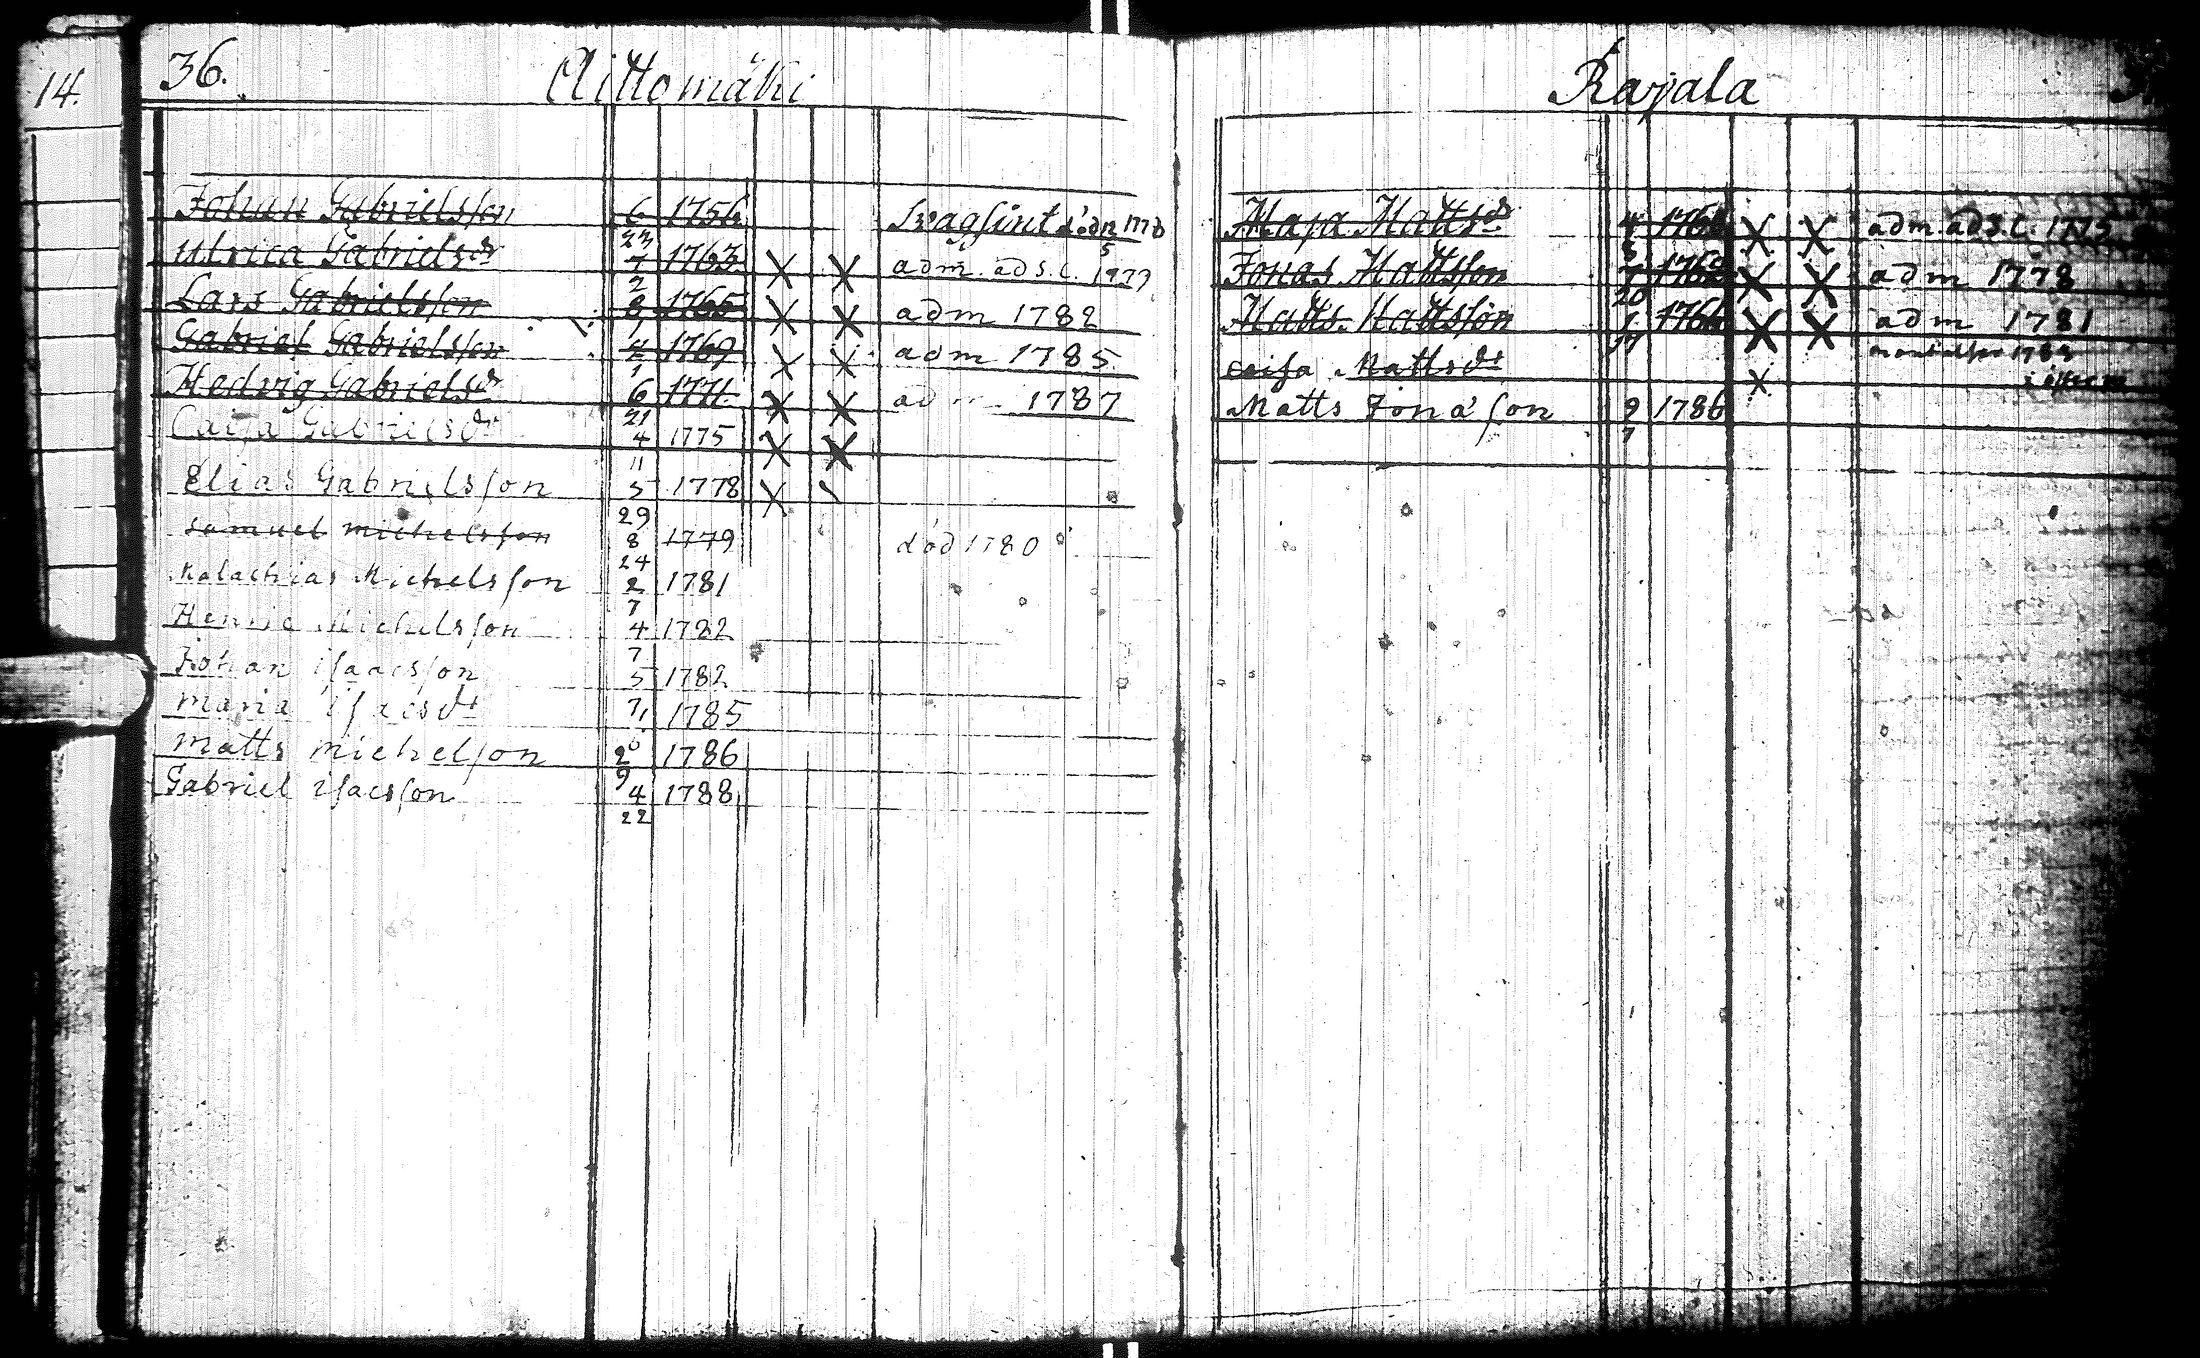 14.
36.
Aittomäki
Johan Gabrielsson 6 1756 Swagsint död 1778
23
Ulrica Gabrielsdr 7 1763 X X adm. ad S. C. 1777
2
Lars Gabrielsson 8 1765 X X adm 1782
1
Gabriel Gabrielsson 4 1769 X X adm 1785
1
Hedvig Gabrielsdr 6 1771 X X adm 1787
21
Caisa Gabrielsdr 4 1775 X X
11
Elias Gabrielsson 5 1778 X
29
Samuel Michelsson 8 1779 död 1780
24
Malachias Michelsson 2 1781
7
Henric Michelsson 4 1782
7
Johan isaacsson 5 1782
Maria isacsdr 7 1785
Matts Michelson 2 1786
9
Gabriel isacsson 4 1788
22
Rajala
Maja Mattsdr 4 X X adm. ad S. C. 1775
Jonas Mattsson 7 X X adm 1778
20
Matts Mattsson 1 1764 X X adm 1781
Mattsdr X
Matts Jonasson 9 1786
7